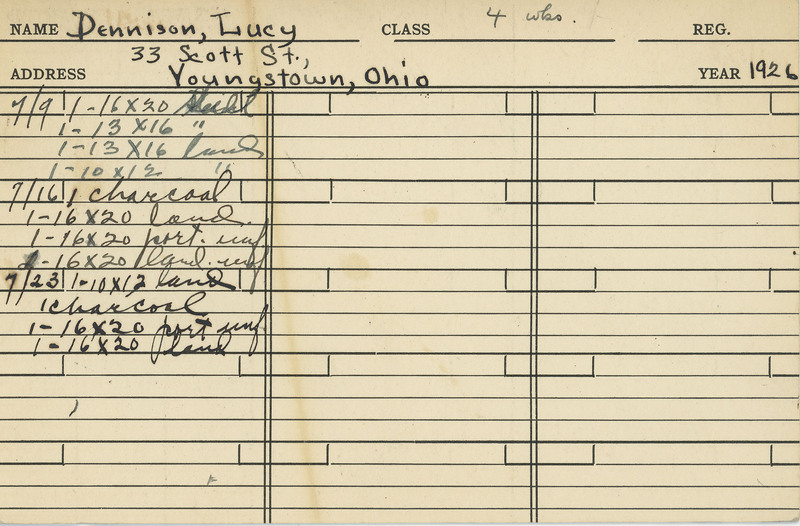 NAME Dennison, Lucy CLASS 4 wks. REG.
33 Scott St.,
ADDRESS Youngstown, Ohio YEAR 1926
7/9 1-16x20
1-13x16 "
1-13x16 land
1-10x12 "
7/16 1 charcoal
1-16x20 land.
1-16x20 port. unf
1-16x20 land. unf
7/23 1-10x12 land
1 charcoal
1-16x20 port unf
1-16x20 land